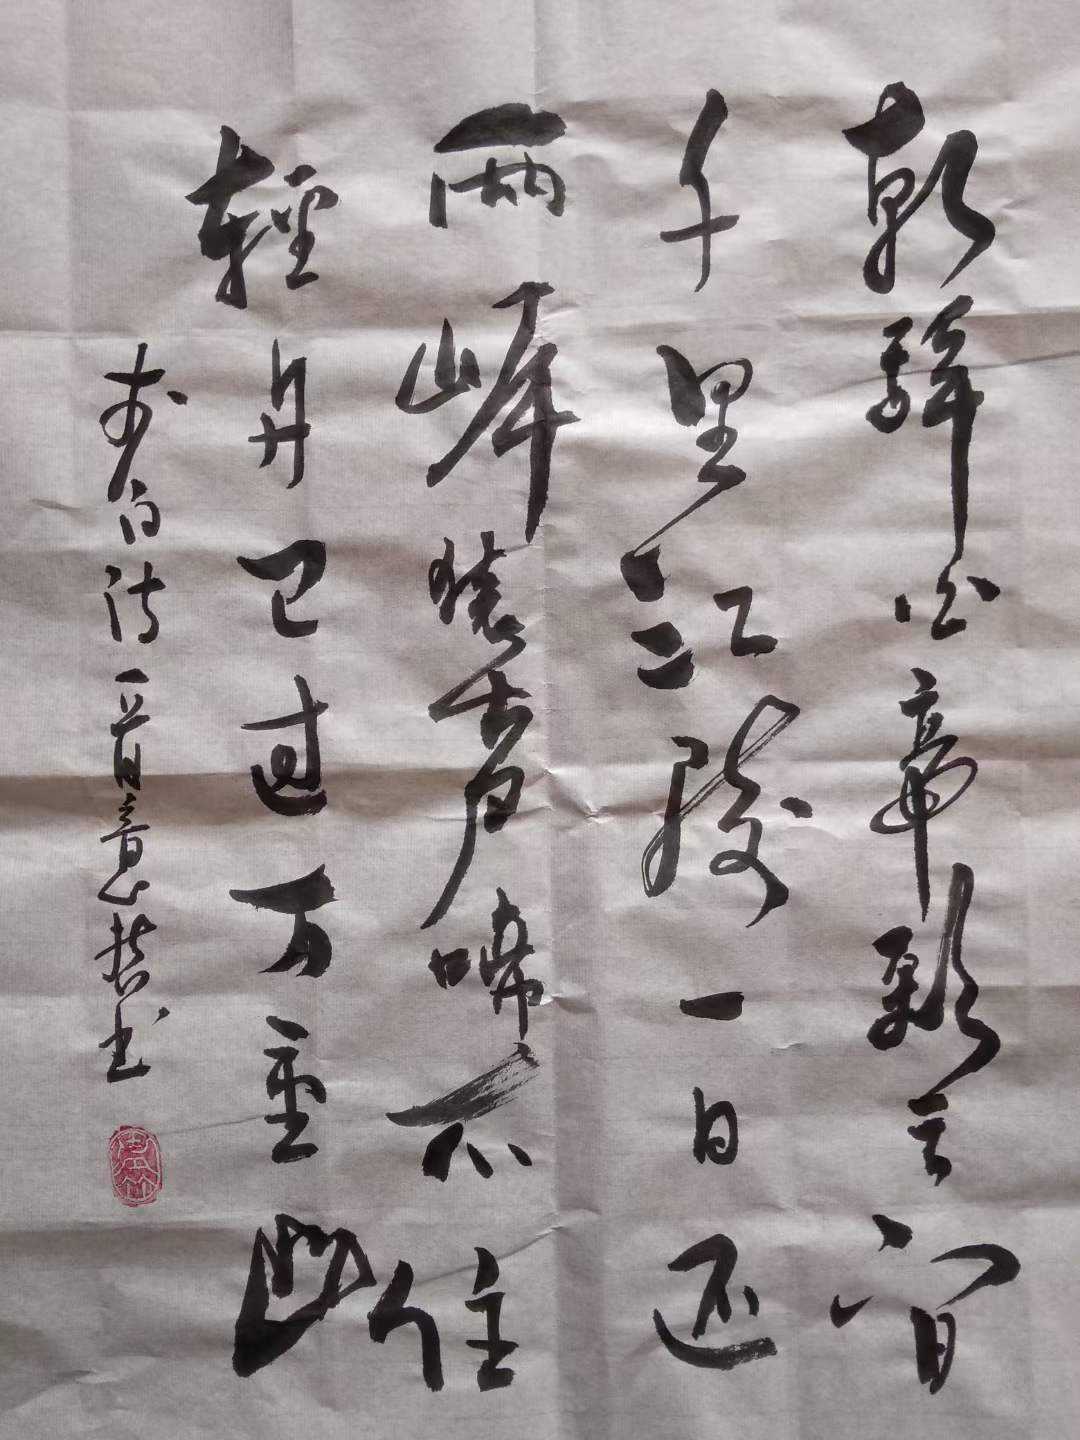 朝辞白帝彩云间
千里江陵一日还
兩岸猿声啼不住
輕舟已过万重山
李白诗一首意书